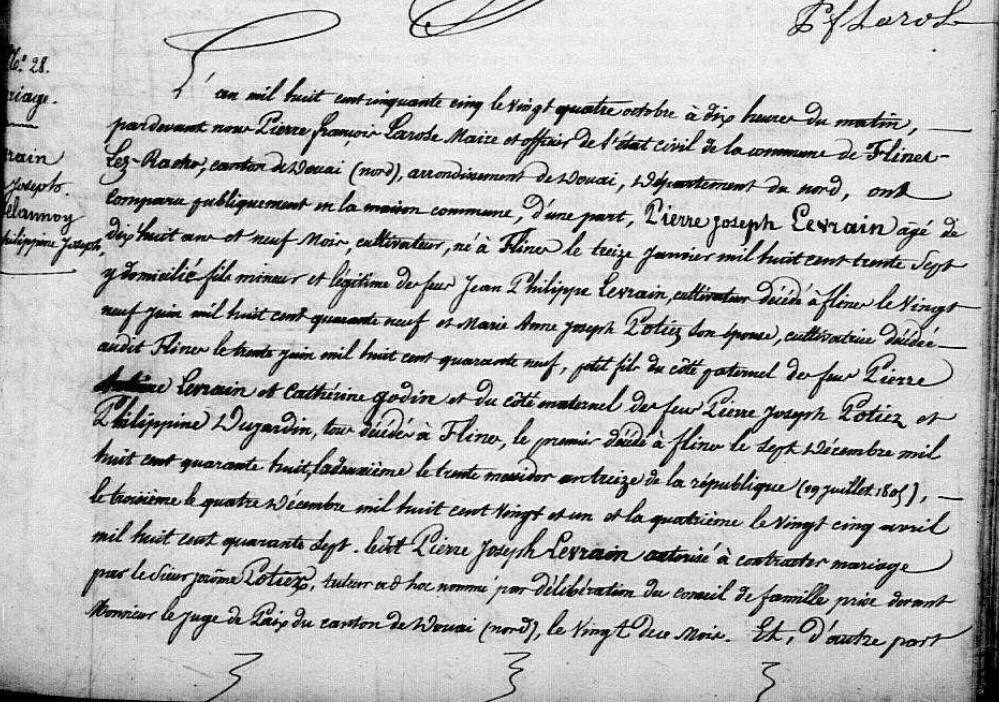 Pf Larose
N.° 28.
riage.
rain
Joseph.
elannoy
hilippine Joseph,
L'an mil huit cent cinquante cinq le vingt quatre octobre à dix heures du matin, —
pardevant nous Pierre françois Larose Maire et officier de l'état civil de la commune de Flines-
Lez-Raches, canton de Douai (nord), arrondissement de Douai, Département du nord, ont
comparu publiquement en la maison commune, d'une part, Pierre Joseph Levrain agé de
dix huit ans et neuf Mois, cultivateur, né à Flines le treize Janvier mil huit cent trente Sept
y domicilié fils mineur et légitime de feu Jean Philippe Levrain, cultivateur décédé à flines le Vingt
neuf Juin mil huit cent quarante neuf et Marie Anne Joseph Potiez son épouse, cultivatrice décédée —
audit Flines le trente Juin mil huit cent quarante neuf, petit fils du côté paternel de feu Pierre
Levrain et Catherine godin et du côté maternel de feu Pierre Joseph Potiez et
Philippine Dujardin, tous décédés à Flines, le premier décédé à flines le Sept Décembre mil
huit cent quarante huit, la deuxième le trente messidor an treize de la république (19 Juillet 1805), —
le troisième le quatre Décembre mil huit cent vingt et un et la quatrième le vingt cinq avril
mil huit cent quarante Sept. ledit Pierre Joseph Levrain autorisé à contracter mariage
par le Sieur Jérôme Potiez, tuteur ad hoc nommé par délibération du conseil de famille prise devant
Monsieur le Juge de Paix du canton de Douai (nord), le vingt de ce Mois. Et, d'autre part